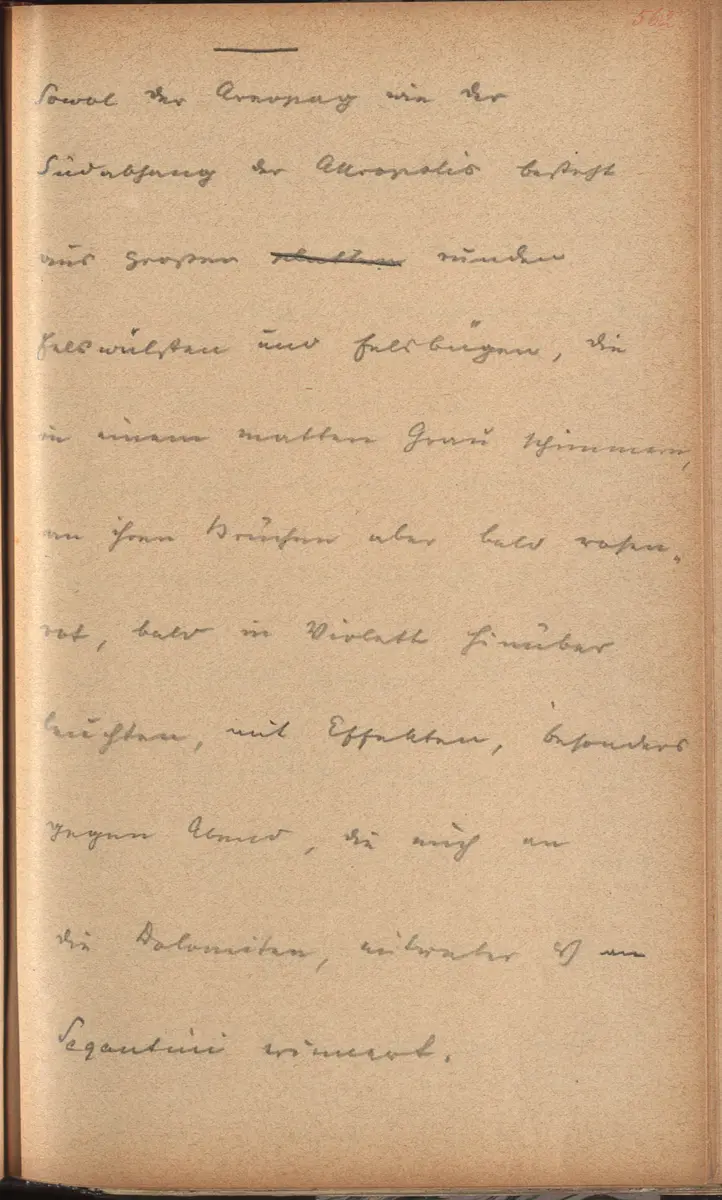 562
Sowol der Areopag wie der
Südabhang der Akropolis besteht
aus großen platten runden
Felswülsten und Felsbügen, die
in einem matten Grau schimmern,
an ihren Brüchen aber bald rosen-
rot, bald in Violett hinüber
leuchten, mit Effekten, besonders
gegen Abend, die mich an
die Dolomiten, mitunter an
Segantini erinnert.